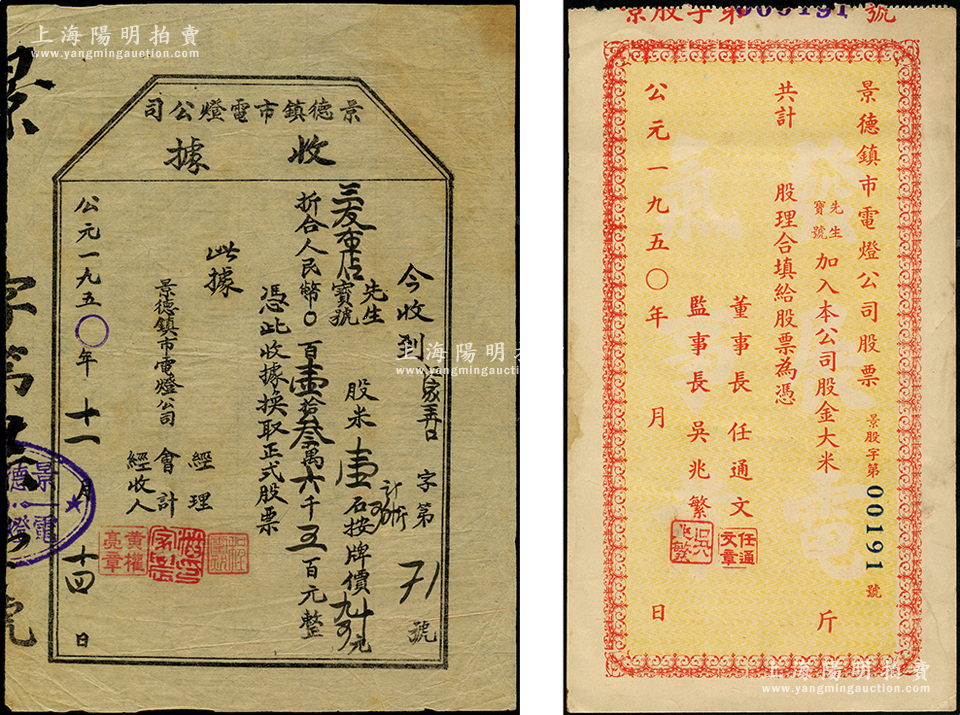 上海陽明拍賣
www.yangmingauction.com
景德鎮市電燈公司
收據
今收到
字第71號
三友布店
先生
寶號
股米壹石按牌價
折合人民幣〇百壹拾叁萬六千五百元整
憑此收據換取正式股票
此據
經理
會計
景德鎮市電燈公司
經收人
黃權亮章
公元一九五〇年十一月十四日
景股字第000191號
景德鎮市電燈公司股票
景股字第00191號
先生
寶號
加入本公司股金大米
斤
共計
股理合填給股票為憑
董事長任通文
任通文章
監事長吳兆繁
吳兆繁
公元一九五〇年
月
日
上海陽明拍賣
www.yangmingauction.com
上海陽明拍賣
www.yangmingauction.com